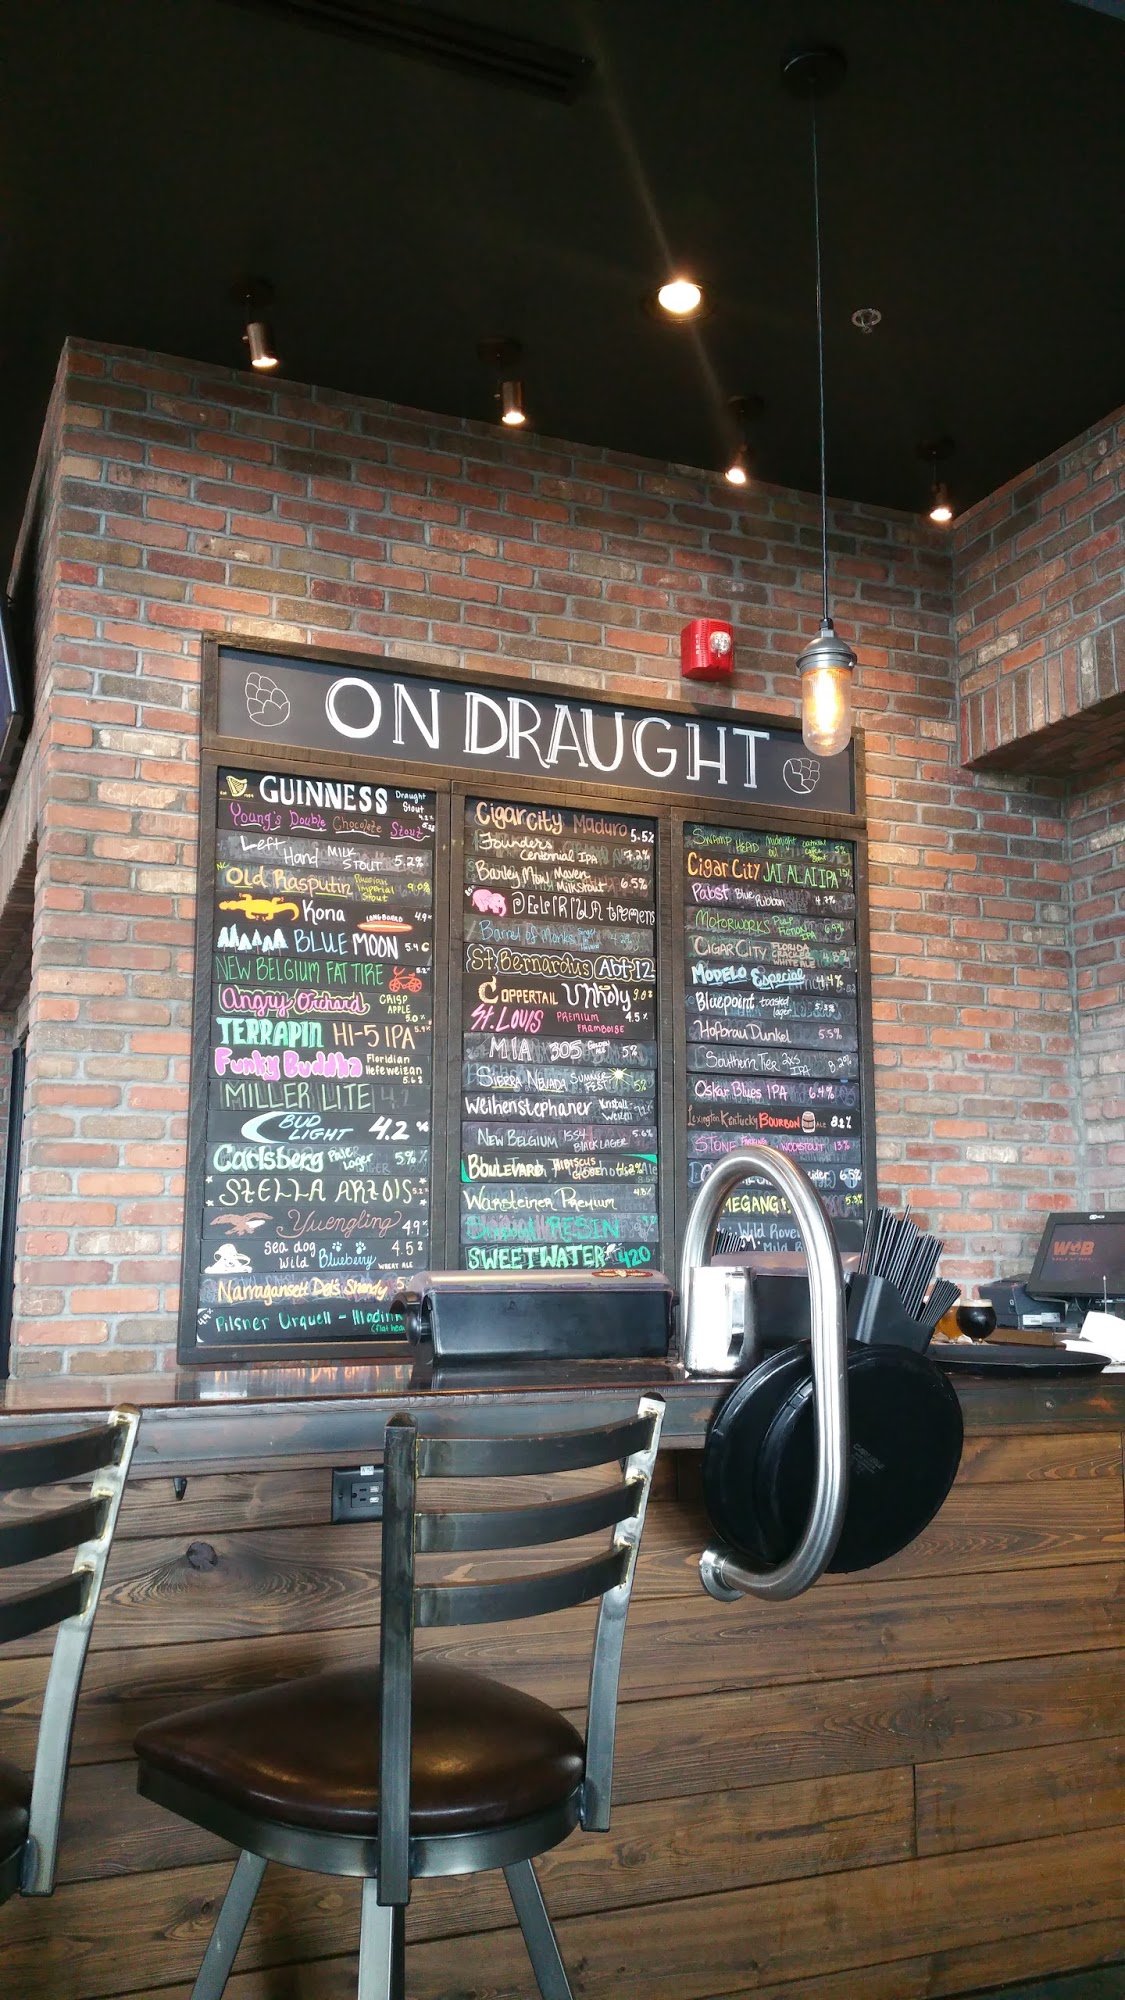 ON DRAUGHT
GUINNESS Draught Stout 4.2%
Young's Double Chocolate Stout
Left Hand MILK STOUT 5.2%
Old Rasputin Russian Imperial Stout 9.0%
Kona LONGBOARD 4.9%
BLUE MOON 5.4
NEW BELGIUM FAT TIRE 5.2%
Angry Orchard CRISP APPLE 5.0%
TERRAPIN HI-5 IPA 5.9%
Funky Buddha Floridian Hefeweizen 5.6%
MILLER LITE 4.2
BUD LIGHT 4.2%
Carlsberg Pale Lager 5%
STELLA ARTOIS 5.2%
Yuengling 4.9%
Sea dog Wild Blueberry WHEAT ALE 4.5%
Narragansett Del's Shandy 5
Pilsner Urquell -
Cigar City Maduro 5.5%
Founders Centennial IPA 7.2%
Barley Mow Maven Milkstout 6.5%
DELIRIUM tremens
Barrel of Monks
St Bernardus Abt 12
COPPERTAIL Unholy 9.0%
St. LOUIS PREMIUM FRAMBOISE 4.5%
MIA 305 GOLDEN ALE 5%
SIERRA NEVADA SUMMER FEST 5%
Weihenstephaner Kristall Weizen
NEW BELGIUM 1554 BLACK LAGER 5.6%
BOULEVARD HIBISCUS GOSE
Warsteiner Premium 4.8%
SWEETWATER 420
SWAMP HEAD midnight oil oatmeal coffee stout 5%
Cigar City JAI ALAI IPA
Pabst Blue Ribbon 4.7%
MOTORWORKS PULP FICTION IPA
CIGAR CITY FLORIDA CRACKER WHITE ALE
MODELO Especial 4.4%
Bluepoint toasted lager 5.5%
Hofbrau Dunkel 5.5%
Southern Tier 2XS IPA 8.2%
Oskar Blues IPA 6.4%
Lexington Kentucky BOURBON ALE 8.2%
STONE WOOTSTOUT 13%
ider 6.5%
MEGANG 5.3%
WOB